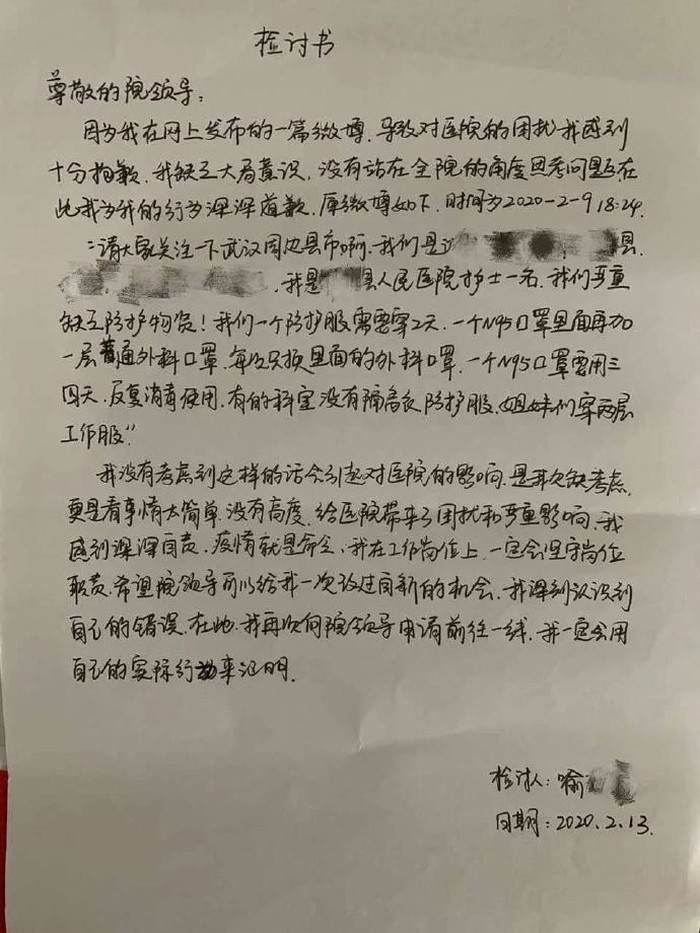 检讨书
尊敬的院领导：
因为我在网上发布的一篇微博，导致对医院的困扰我感到
十分抱歉，我缺乏大局意识，没有站在全院的角度思考问题在
此我为我的行为深深道歉，原微博如下，时间为2020-2-9 18:24.
“请大家关注一下武汉周边县市啊，我们是 县，
，我是 县人民医院护士一名，我们严重
缺乏防护物资！我们一个防护服需要穿2天，一个N95口罩里面再加
一层普通外科口罩，每次只换里面的外科口罩，一个N95口罩要用三
四天，反复消毒使用，有的科室没有隔离衣防护服，姐妹们穿两层
工作服”
我没有考虑到这样的话会引起对医院的影响，是我欠缺考虑，
更是看事情太简单，没有高度，给医院带来了困扰和严重影响，我
感到深深自责，疫情就是命令，我在工作岗位上，一定会坚守岗位
职责，希望院领导可以给我一次改过自新的机会，我深刻认识到
自己的错误，在此，我再次向院领导申请前往一线，我一定会用
自己的实际行动来证明.
检讨人：喻
日期：2020.2.13.